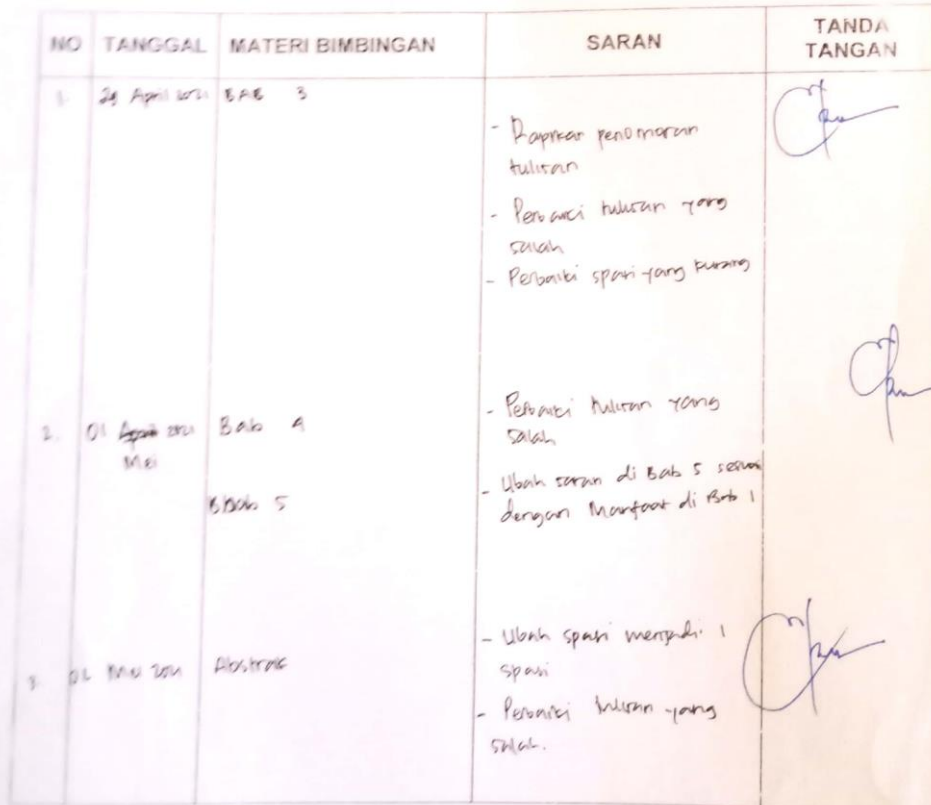 NO TANGGAL MATERI BIMBINGAN SARAN TANDA TANGAN
1. 29 April 2021 BAB 3
- Rapikan penomoran
tulisan
- Perbaiki tulisan yang
salah
- Perbaiki spasi yang kurang
2. 01 April 2021 Bab 4
Mei
Bbab 5
- Perbaiki tulisan yang
salah
- Ubah saran di Bab 5 sesuai
dengan Manfaat di Bab 1
3. 02 Mei 2021 Abstrak
- Ubah spasi menjadi 1
spasi
- Perbaiki tulisan yang
salah.